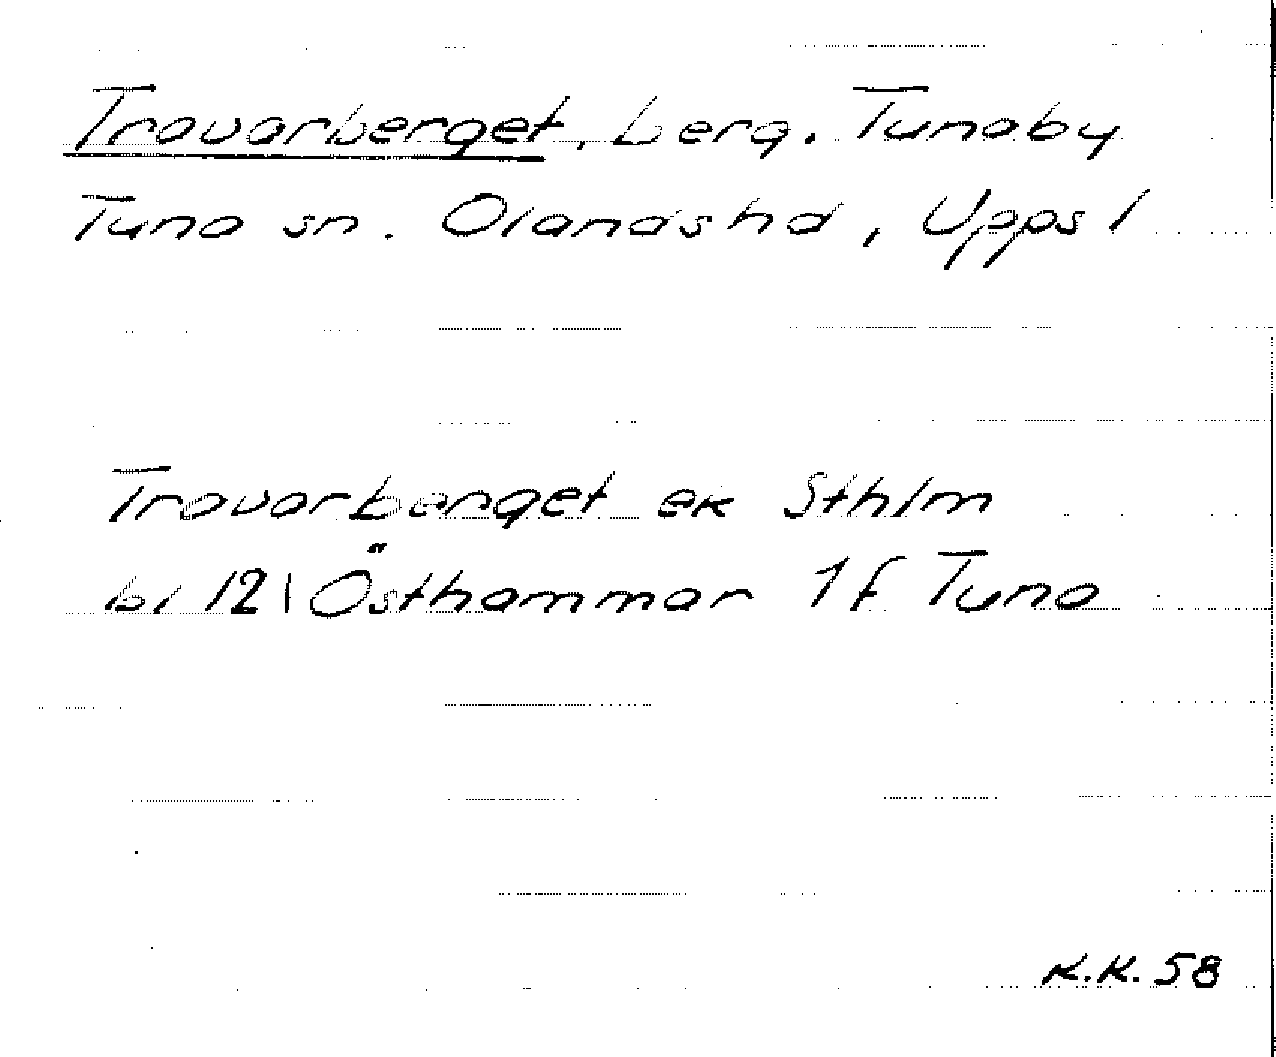 Travarberget, berg. Tunaby
Tuna sn. Olandshd, Uppsl
Travarberget ek Sthlm
bl 121 Östhammar 1f Tuna
K.K. 58